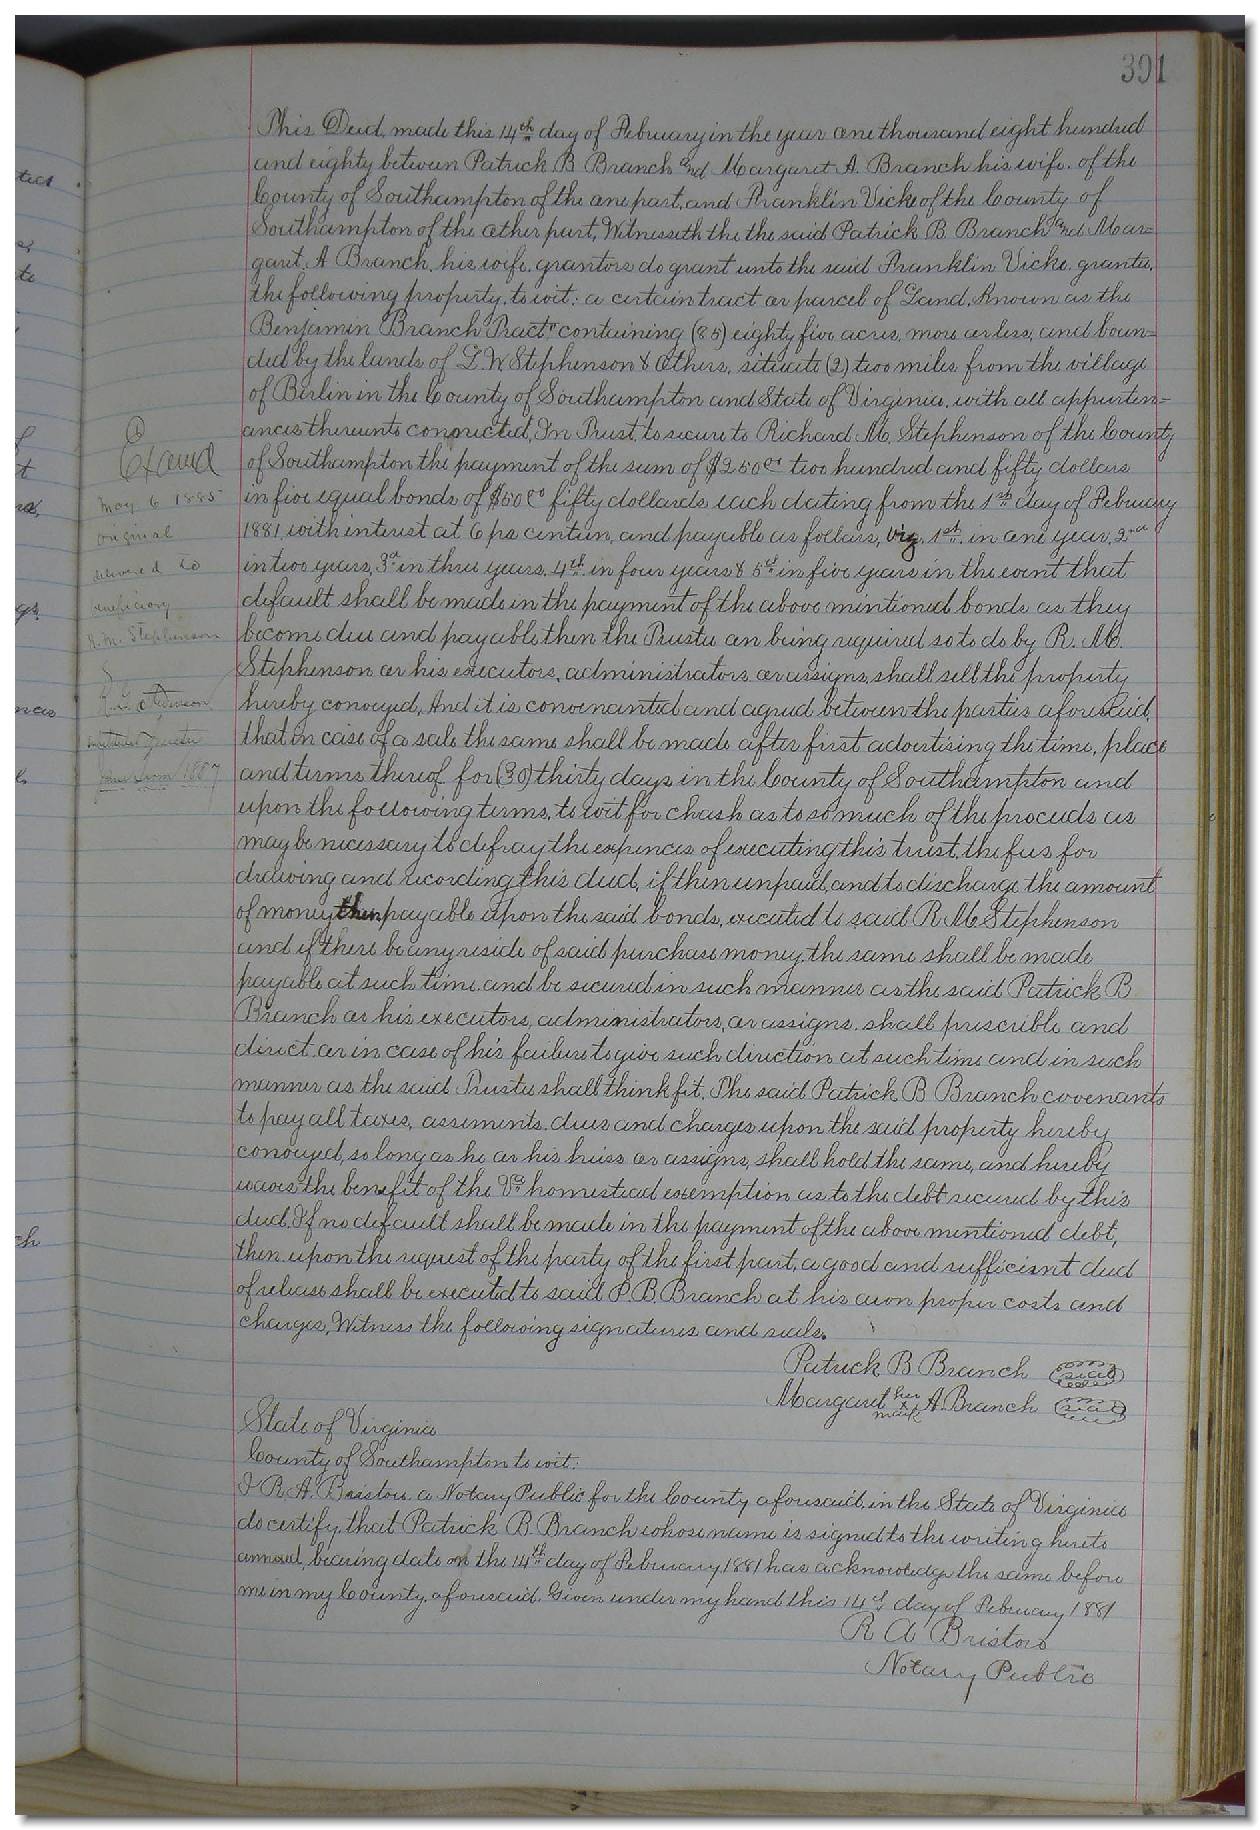 391
This Deed, made this 14th day of February in the year one thousand eight hundred
and eighty between Patrick B Branch and Margaret A. Branch his wife. of the
County of Southampton of the one part, and Franklin Vicke of the County of
Southampton of the other part, Witnesseth the the said Patrick B. Branch and Mar=
garet. A Branch, his wife, grantors do grant unto the said Franklin Vicke. grantee,
the following property, to wit: a certain tract or parcel of Land, Known as the
Benjamin Branch Tract" containing (85) eighty five acres, more or less, and boun=
ded by the lands of L. W Stephenson & Others, situate (2) two miles from the village
of Berlin in the County of Southampton and State of Virginia, with all appurten=
ances thereunto connected, In Trust, to secure to Richard M. Stephenson of the County
of Southampton the payment of the sum of $250.00 two hundred and fifty dollars
in five equal bonds of $50.00 fifty dollards each dating from the 1st day of February
1881 with interest at 6 per centum, and payable as follows, viz. 1st. in one year, 2nd
in two years, 3d in three years. 4th. in four years & 5th in five years in the event that
default shall be made in the payment of the above mentioned bonds as they
become due and payable then the Trustee on being required so to do by R. M.
Stephenson or his executors, administrators or assigns, shall sell the property
hereby conveyed, And it is convenanted and agreed between the parties aforesaid,
that in case of a sale the same shall be made after first advertising the time, place
and terms thereof for (30) thirty days in the County of Southampton and
upon the following terms, to wit for chash as to so much of the proceeds as
may be necessary to defray the expences of executing this trust, the fees for
drawing and recording this deed, if then unpaid, and to discharge the amount
of money then payable upon the said bonds, executed to said R M Stephenson
and if there be any reside of said purchase money, the same shall be made
payable at such time, and be secured in such manner as the said Patrick B
Branch or his executors, administrators, or assigns. shall prescrible and
direct, or in case of his failure to give such direction at such time and in such
manner as the said Trustee shall think fit, The said Patrick B Branch covenants
to pay all taxes, assements, dues and charges upon the said property hereby
conveyed, so long as he or his heirs or assigns, shall hold the same, and hereby
waves the benefit of the Va homestead exemption as to the debt secured by this
deed, If no default shall be made in the payment of the above mentioned debt,
then upon the request of the party of the first part, a good and sufficient deed
of release shall be executed to said P. B. Branch at his own proper costs and
charges, Witness the following signatures and seals.
Patrick B Branch seal
Margaret her x mark A. Branch seal
State of Virginia
County of Southampton to wit:
I R. A. Bristow a Notary Public for the County aforesaid, in the State of Virginia
do certify, that Patrick B. Branch whose name is signed to the writing hereto
annexed, bearing date on the 14th day of February 1881 has acknowledge the same before
me in my County, aforesaid. Given under my hand this 14th day of February 1881
R A Bristow
Notary Public
Exam'd
May 6 1885
original
delivered to
beneficiary
R. M. Stephenson